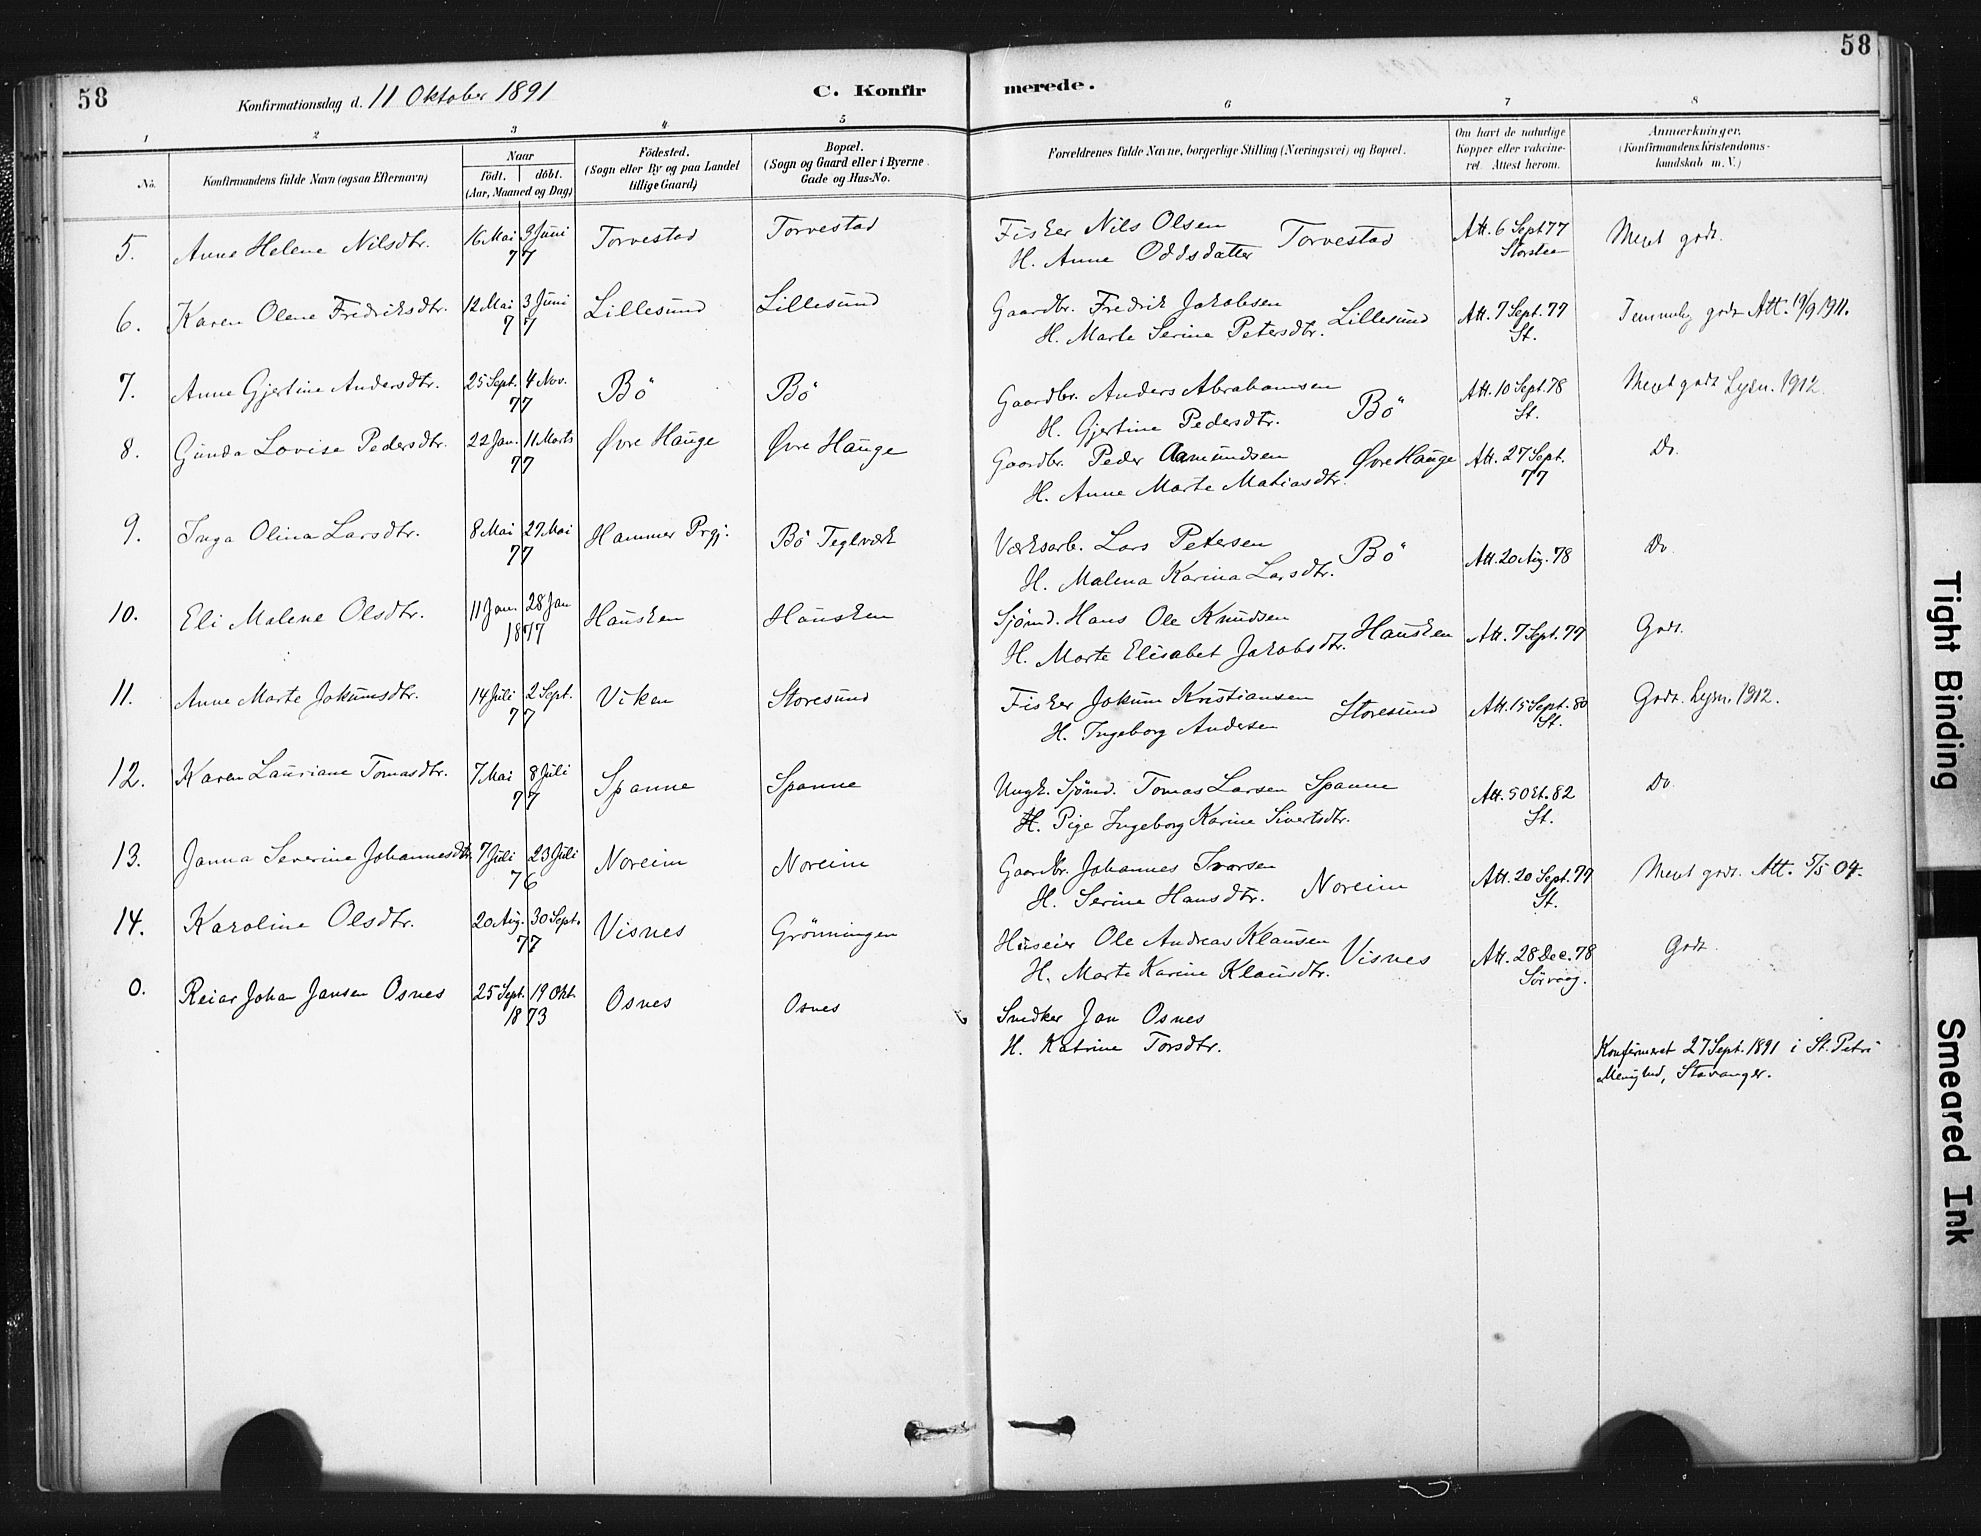 58
Konfirmationsdag d. 11 Oktober 1891
C. Konfirmerede.
58
1 2 3 4 5 6 7 8
No.
Konfirmandens fulde Navn (ogsaa Efternavn)
Naar
födt. döbt.
(Aar, Maaned og Dag)
Födested.
(Sogn eller By og paa Landet
tillige Gaard)
Bopæl.
(Sogn og Gaard eller i Byerne
Gade og Hus-No.
Forældrenes fulde Navne, borgerlige Stilling (Næringsvei) og Bopæl.
Om havt de naturlige
Kopper eller vakcine-
ret. Attest herom.
Anmærkninger.
(Konfirmandens Kristendoms-
kundskab m. V.)
5. Anne Helene Nilsdtr. 16 Mai 9 Juni 77 Torvestad Torvestad Fisker Nils Olsen Torvestad Att. 6 Sept 77 Meget godt.
H. Anne Oddsdatter
6. Karen Olene Fredriksdtr. 12 Mai 3 Juni 77 Lillesund Lillesund Gaardbr. Fredrik Jakobsen Lillesund Att. 7 Sept. 77 Temmelig godt Att. 19/9 1911.
H. Marte Serine Petersdtr. St.
7. Anne Gjertine Andersdtr. 25 Sept. 4 Nov. 77 Bö Bö Gaardbr. Anders Abrahamsen Bö Att. 10 Sept 78 Meget godt Lysn. 1912
H. Gjertine Pedersdtr. St.
8. Gunda Lovise Pedersdtr. 22 Jan. 11 Marts 77 Øvre Hauge Øvre Hauge Gaardbr. Peder Aamundsen Øvre Hauge Att. 27 Sept. 77 Do.
H. Anne Marte Matiasdtr.
9. Inga Olina Larsdtr. 8 Mai 27 Mai 77 Hammer Prgj. Bö Teglværk Værksarb. Lars Petersen Bö Att. 20 Aug. 78 Do
H. Malena Karina Larsdtr.
10. Eli Malene Olsdtr. 11 Jan. 28 Jan 1877 Hausken Hausken Sjömd. Hans Ole Knudsen Hausken Att. 7 Sept. 77 Godt.
H. Marte Elisabet Jakobsdtr.
11. Anne Marte Jokumsdtr. 14 Juli 2 Sept. 77 Viken Storesund Fisker Jokum Kristiansen Storesund Att. 15 Sept. 80 Godt. Lysn. 1912.
H. Ingeborg Andersen St.
12. Karen Lauriane Tomasdtr. 7 Mai 8 Juli 77 Spanne Spanne Ungk. Sjömd. Tomas Larsen Spanne Att. 5 Okt. 82 Do
H. Pige Ingeborg Karine Sivertsdtr. St.
13. Janna Severine Johannesdtr. 7 Juli 23 Juli 76 Noreim Noreim Gaardbr. Johannes Ivarsen Noreim Att. 20 Sept. 77 Meget godt. Att. 5/5 04.
H. Serine Hansdtr. St.
14. Karoline Olsdtr. 20 Aug. 30 Sept. 77 Visnes Grönningen Huseier Ole Andreas Klausen Visnes Att. 28 Dec. 78 Godt
H. Marte Karine Klausdtr. Sörvaag.
0. Reiar Johan Jansen Osnes 25 Sept. 19 Okt 1873 Osnes Osnes Snedker Jan Osnes
H. Katrine Torsdtr. Konfirmeret 27 Sept. 1891 i St. Petri
Menighed, Stavanger.
Tight Binding
Smeared Ink